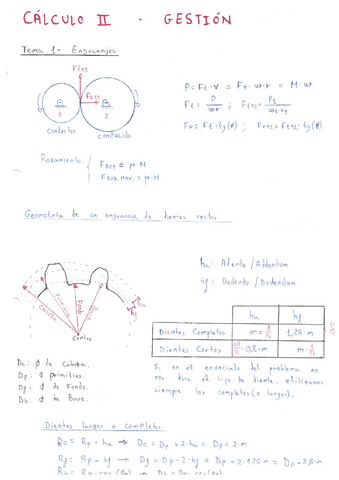 CÁLCULO II - GESTIÓN
Tema 1 - Engranajes
Ft12
Fr12
1
2
conductor
conducido
P = Ft · v = Ft · w · r = M · w
Ft = P / w·r ; Ft12 =
Fr = Ft · tg(φ) ; Fr12 = Ft12 · tg(φ)
Rozamiento:
FROZ ≤ μ·N
FROZ MAX. = μ·N
Geometría de un engranaje de dientes rectos
Cabeza
Primitiva
Fondo
Centro
ha
hf
ha: Adendo / Addendum
hf: Dedendo / Dedendum
ha
hf
Dientes Completos
1,25·m
Dientes Cortos
0,8·m
Dc: ϕ de Cabeza.
Dp: ϕ primitivo.
Df: ϕ de Fondo.
Db: ϕ de Base.
Si en el enunciado del problema no
nos dice el tipo de diente, utilizamos
siempre los completos (o largos).
Dientes largos o completos
Rc = Rp + ha → Dc = Dp + 2·ha = Dp + 2·m
Rf = Rp - hf → Df = Dp - 2·hf = Dp - 2·1,25·m = Dp - 2,5·m